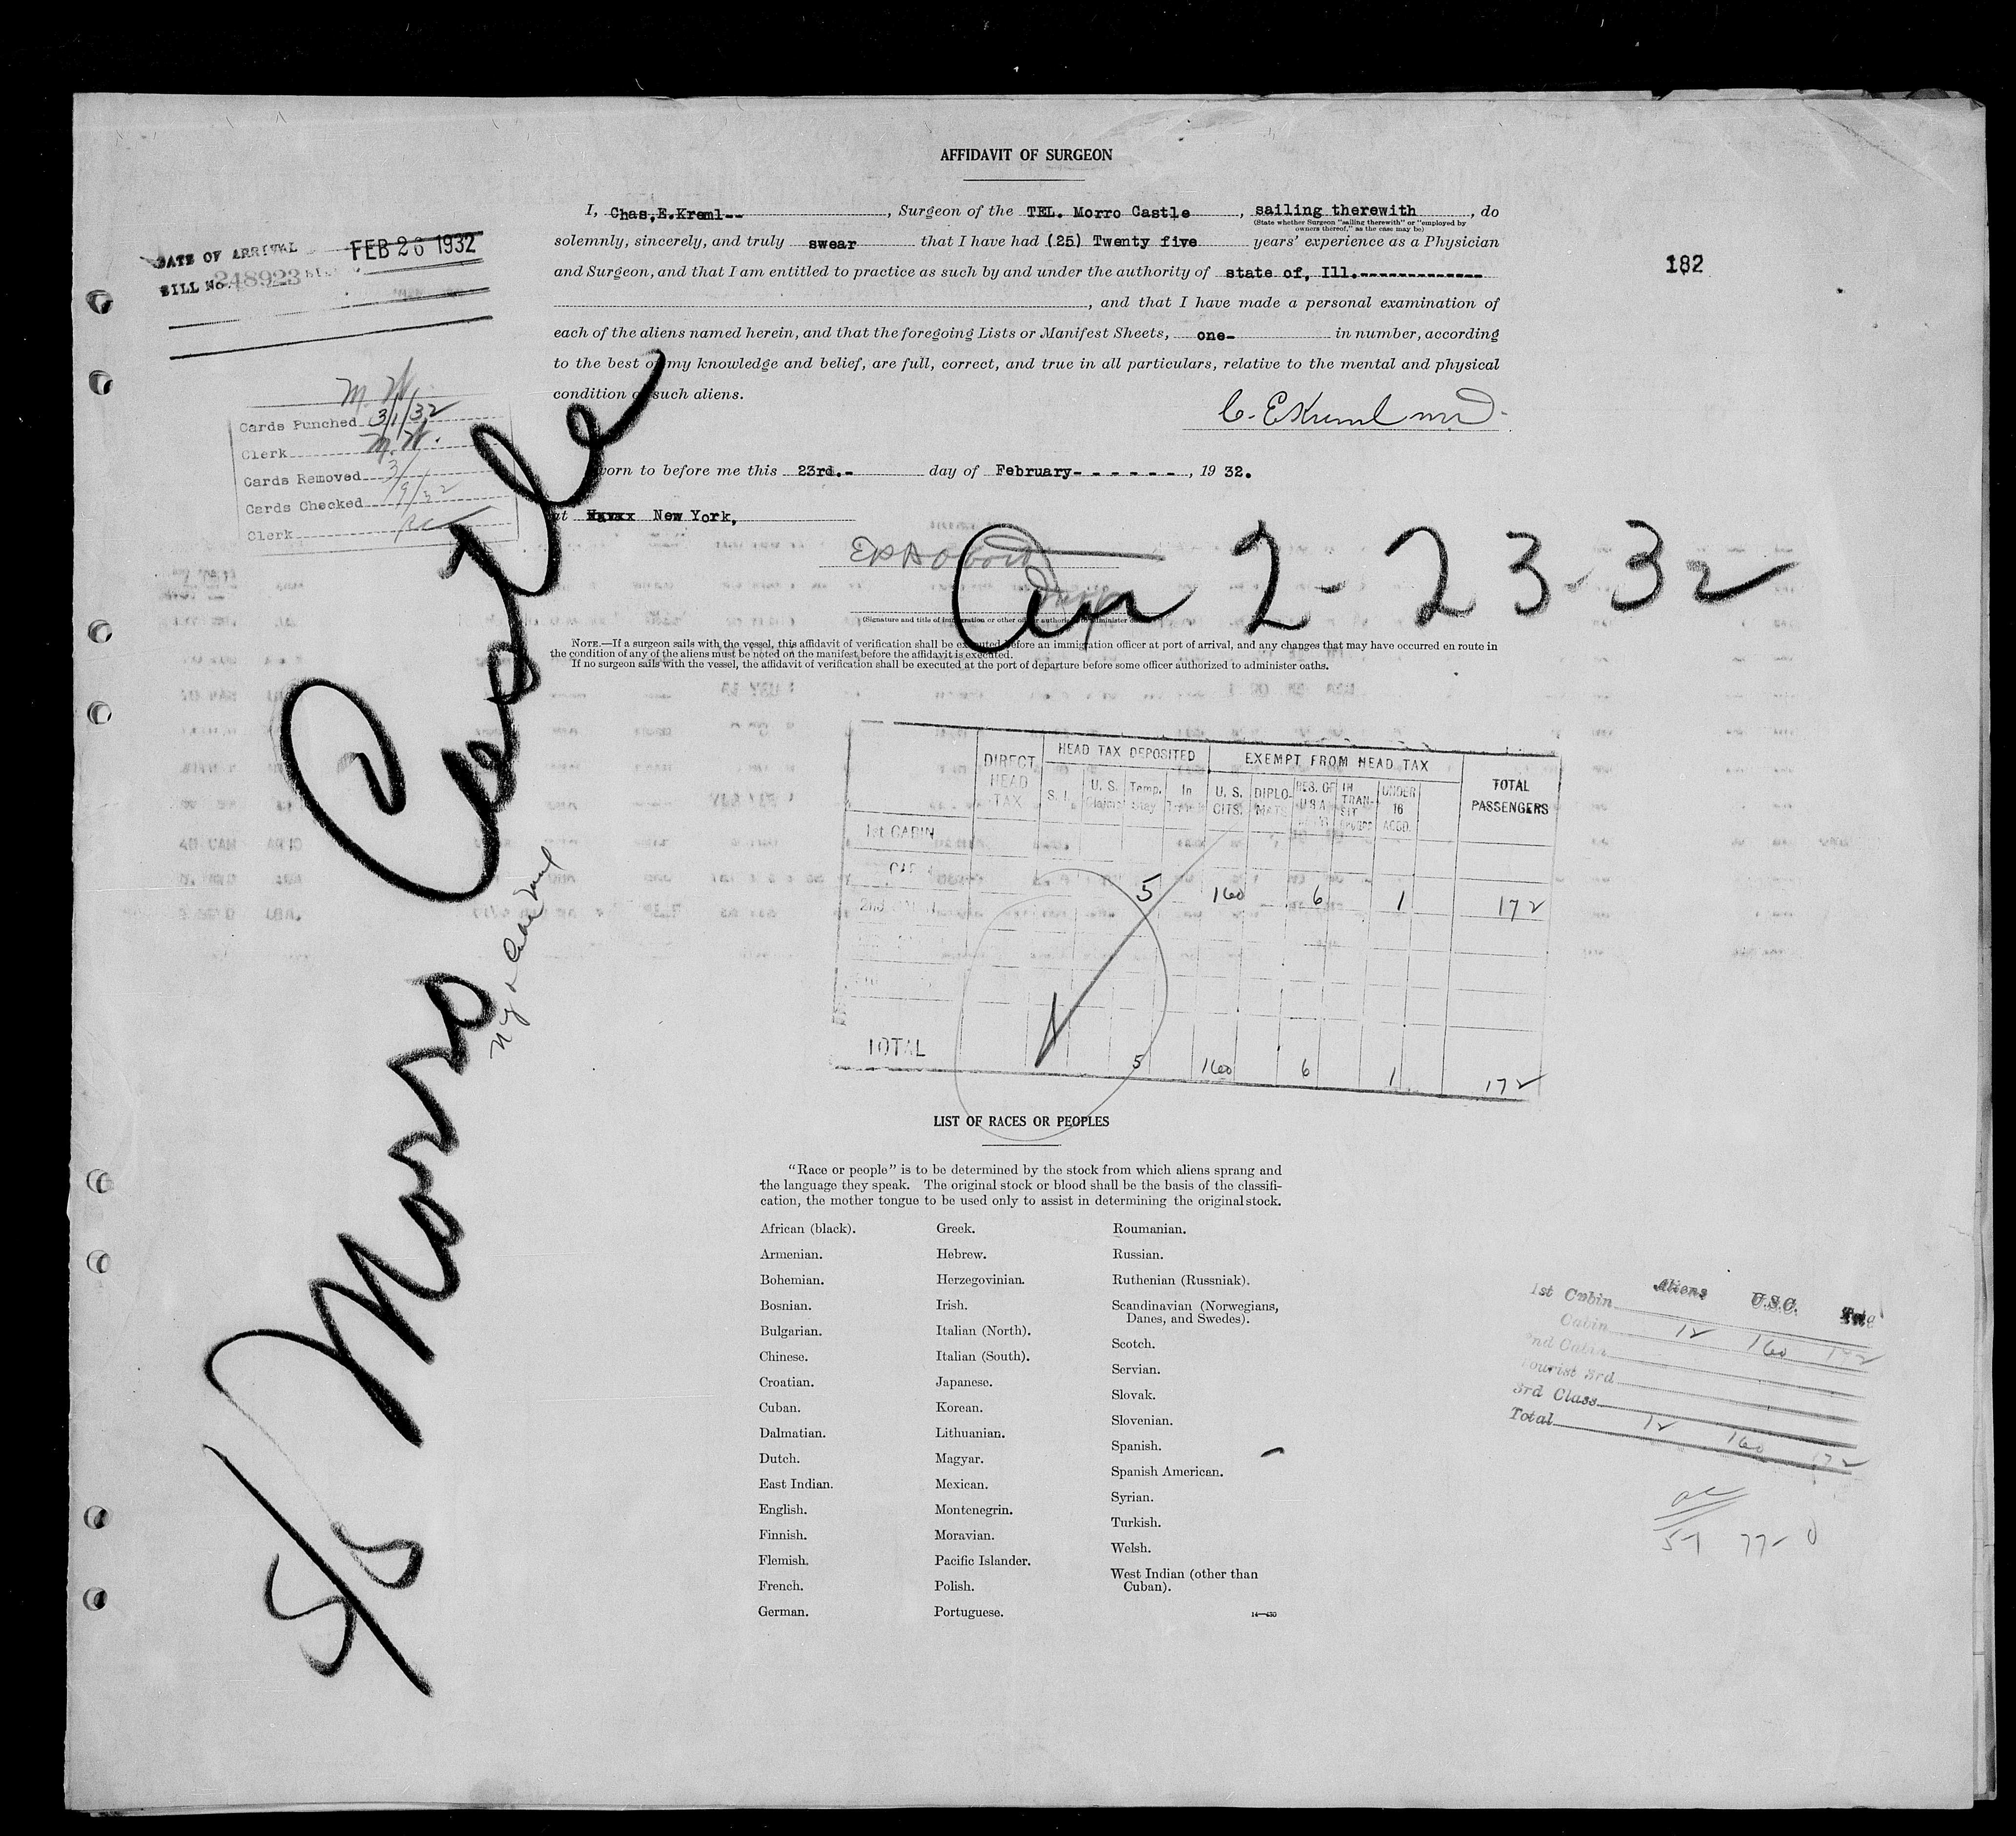 AFFIDAVIT OF SURGEON
I, Chas.E.Kreml--, Surgeon of the TEL. Morro Castle, sailing therewith, do
(State whether Surgeon "sailing therewith" or "employed by
owners thereof," as the case may be)
solemnly, sincerely, and truly swear that I have had (25) Twenty five years' experience as a Physician
and Surgeon, and that I am entitled to practice as such by and under the authority of state of, Ill.-------------
, and that I have made a personal examination of
each of the aliens named herein, and that the foregoing Lists or Manifest Sheets, one- in number, according
to the best of my knowledge and belief, are full, correct, and true in all particulars, relative to the mental and physical
condition of such aliens.
C. E Kreml MD.
Sworn to before me this 23rd.- day of February- - - - - -, 19 32.
at New York,
Arr 2-23-32
(Signature and title of immigration or other officer authorized to administer oaths)
NOTE.—If a surgeon sails with the vessel, this affidavit of verification shall be executed before an immigration officer at port of arrival, and any changes that may have occurred en route in
the condition of any of the aliens must be noted on the manifest before the affidavit is executed.
If no surgeon sails with the vessel, the affidavit of verification shall be executed at the port of departure before some officer authorized to administer oaths.
182
DATE OF ARRIVAL FEB 26 1932
BILL No. 248923
M. W.
Cards Punched 3/1/32
Clerk M. W.
Cards Removed 3/
Cards Checked 9/32
Clerk
S/S Morro Castle
DIRECT HEAD TAX
HEAD TAX DEPOSITED
EXEMPT FROM HEAD TAX
TOTAL PASSENGERS
S. I. U. S. Claims Temp. Stay In Transit U. S. CITS. DIPLOMATS RES. OF U S A IN TRANSIT UNDER 16 ACCD.
1st CABIN
CABIN
2nd CABIN 5 160 6 1 172
TOTAL 5 160 6 1 172
LIST OF RACES OR PEOPLES
"Race or people" is to be determined by the stock from which aliens sprang and
the language they speak. The original stock or blood shall be the basis of the classifi-
cation, the mother tongue to be used only to assist in determining the original stock.
African (black).
Armenian.
Bohemian.
Bosnian.
Bulgarian.
Chinese.
Croatian.
Cuban.
Dalmatian.
Dutch.
East Indian.
English.
Finnish.
Flemish.
French.
German.
Greek.
Hebrew.
Herzegovinian.
Irish.
Italian (North).
Italian (South).
Japanese.
Korean.
Lithuanian.
Magyar.
Mexican.
Montenegrin.
Moravian.
Pacific Islander.
Polish.
Portuguese.
Roumanian.
Russian.
Ruthenian (Russniak).
Scandinavian (Norwegians,
Danes, and Swedes).
Scotch.
Servian.
Slovak.
Slovenian.
Spanish.
Spanish American.
Syrian.
Turkish.
Welsh.
West Indian (other than
Cuban).
14—430
Aliens U.S.C. Total
1st Cabin
Cabin 12 160 172
2nd Cabin
Tourist 3rd
3rd Class
Total 12 160 172